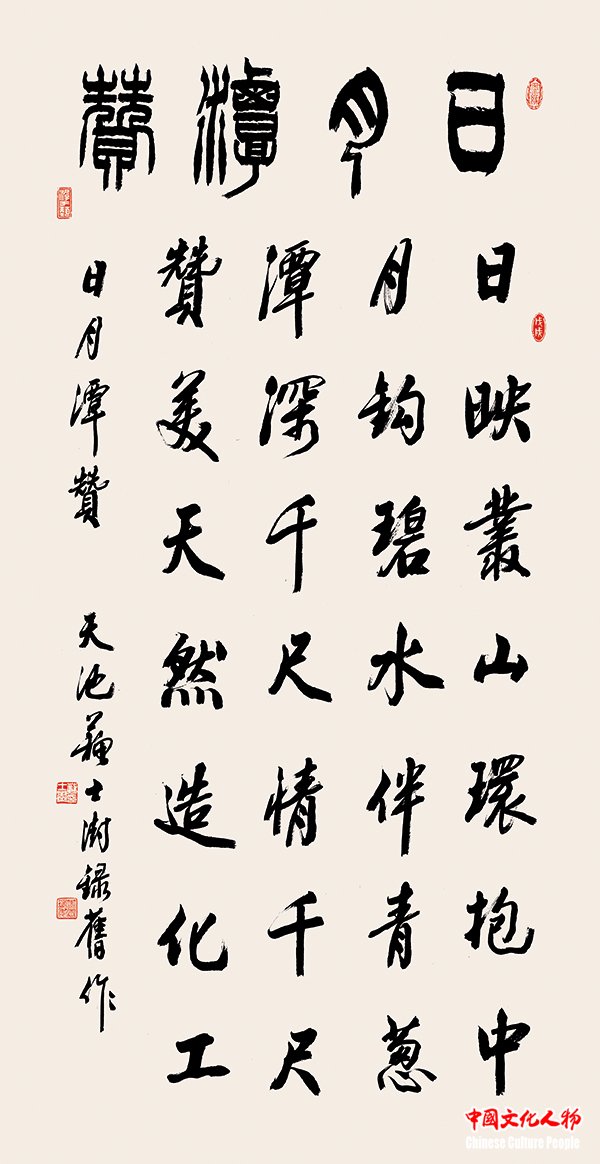 日月潭赞
日映叢山環抱中
月鈎碧水伴青蔥
潭深千尺情千尺
贊美天然造化工
日月潭贊 天池蘇士澍録舊作
戊戌
中國文化人物
Chinese Culture People